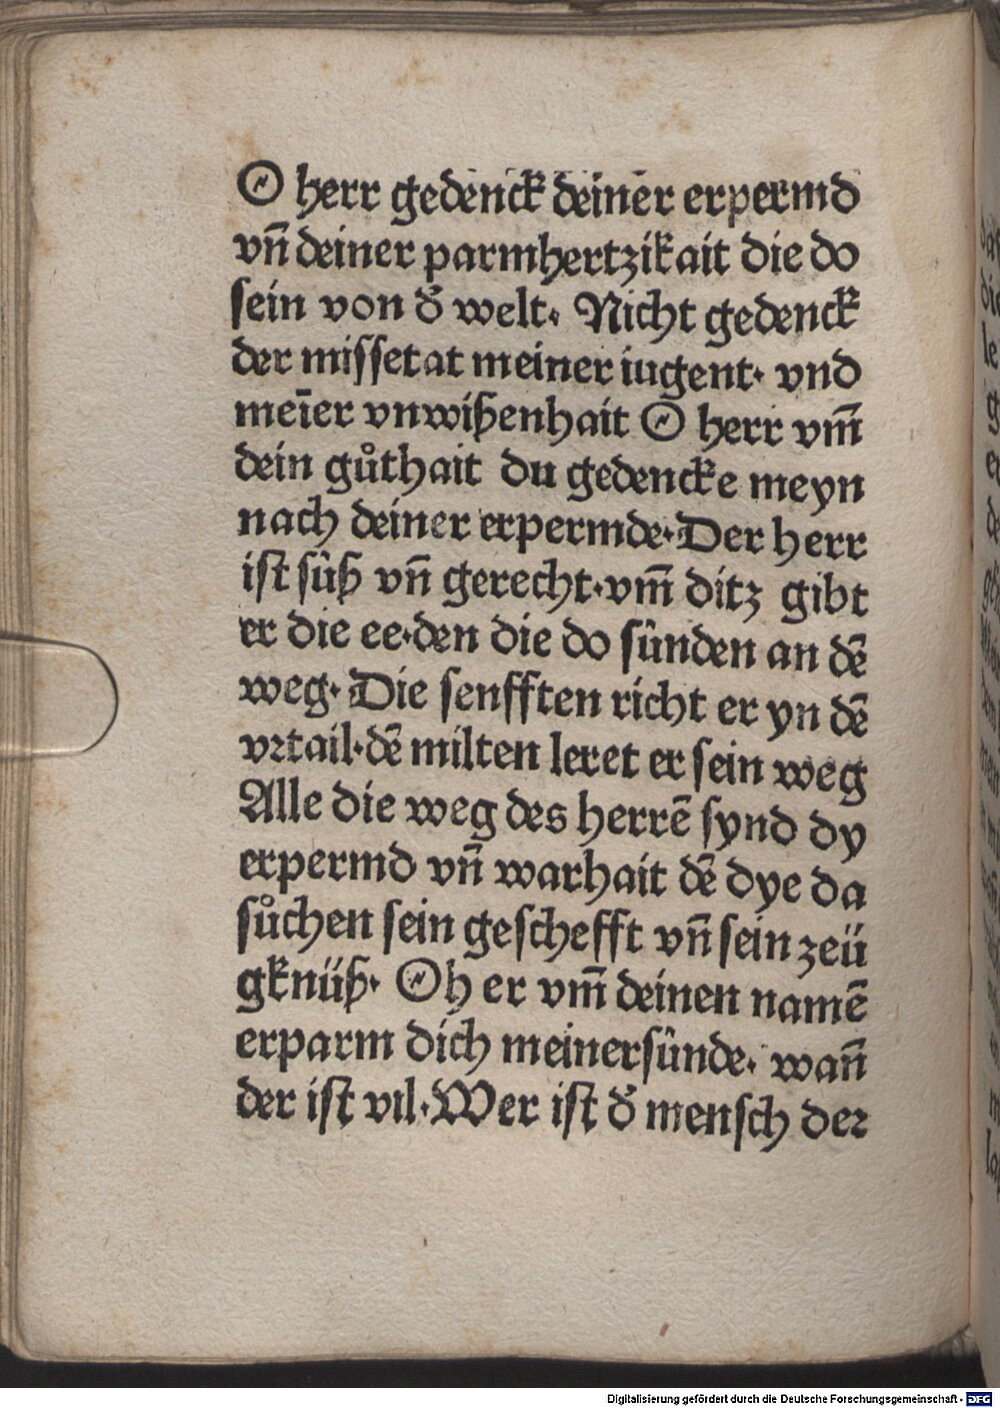 O herr gedenck deiner erpermd
vn̄ deiner parmhertzikait die do
sein von d̊ welt. Nicht gedenck
der missetat meiner iugent. vnd
meīer vnwißenhait O herr vm̄
dein gůthait du gedencke meyn
nach deiner erpermde. Der herr
ist sûß vn̄ gerecht. vm̄ ditz gibt
er die ee. den die do sûnden an dē
weg. Die senfften richt er yn dē
vꝛtail. dē milten leret er sein weg
Alle die weg des herrē synd dy
erpermd vn̄ warhait dē dye da
sůchen sein geschefft vn̄ sein zeü
gknüß. O h er vm̄ deinen namē
erparm dich meinersûnde. wan̄
der ist vil. Wer ist d̊ mensch deꝛ
Digitalisierung gefördert durch die Deutsche Forschungsgemeinschaft - DFG